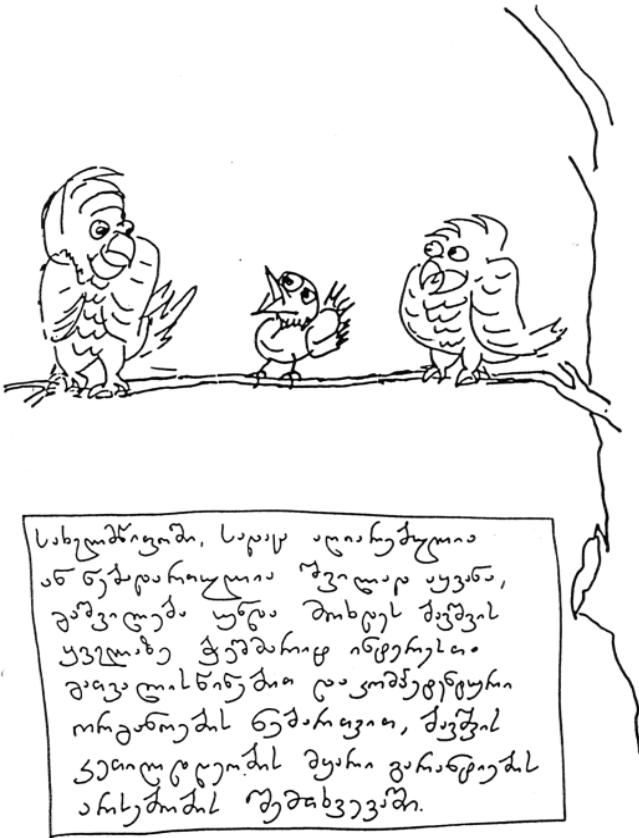 სახელმწიფოში, სადაც აღიარებულია
ან ნებადართულია შვილად აყვანა,
გაშვილება უნდა მოხდეს ბავშვის
ყველაზე ჭეშმარიტ ინტერესთა
გათვალისწინებით და კომპეტენტური
ორგანოების ნებართვით, ბავშვის
კეთილდღეობის მყარი გარანტიების
არსებობის შემთხვევაში.